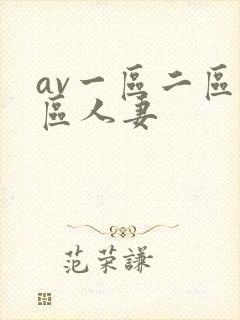 av一區二區
區人妻
范荣謙